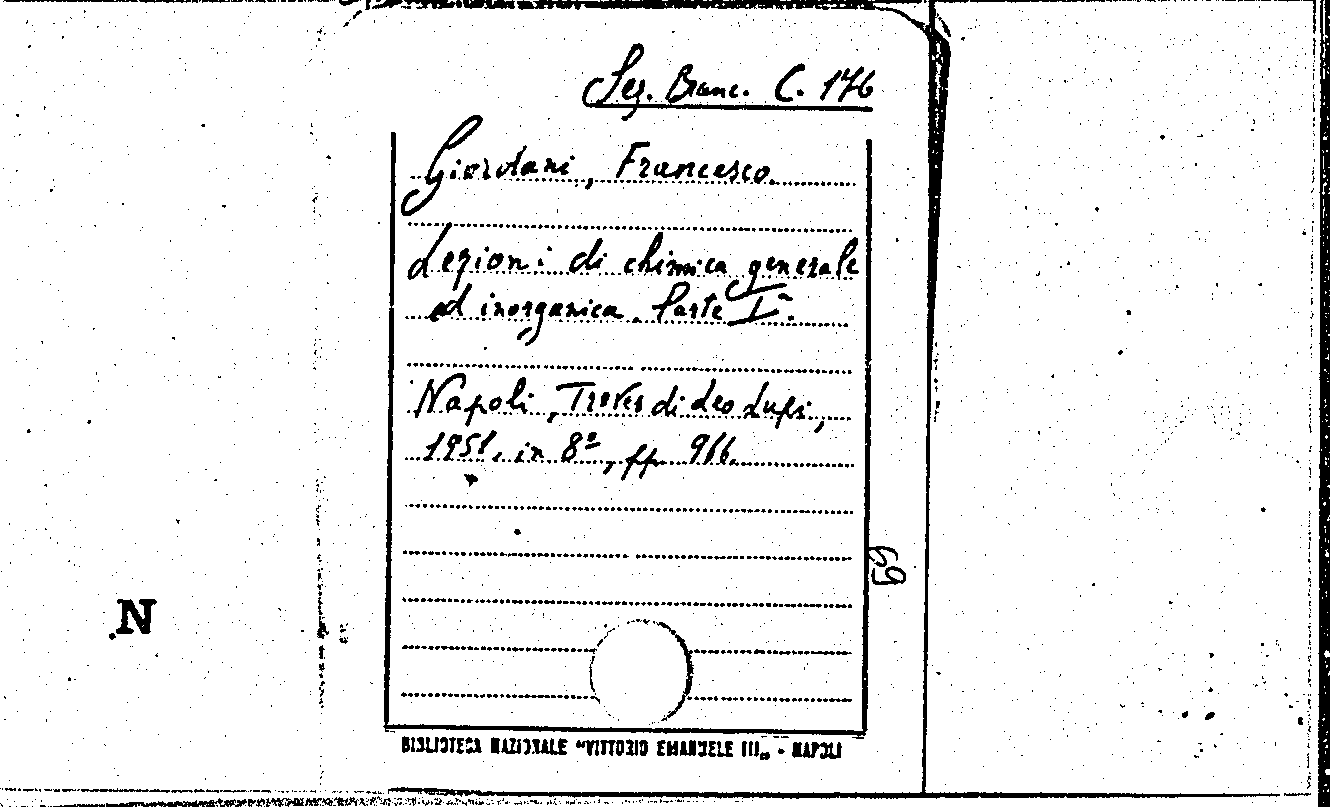 Sez. Branc. C. 176
Giordani, Francesco.
Lezioni di chimica generale
ed inorganica. Parte Iª.
Napoli, Treves di Leo Lupi,
1951, in 8º, pp. 966.
59
N
BIBLIOTECA NAZIONALE "VITTORIO EMANUELE III„ - NAPOLI